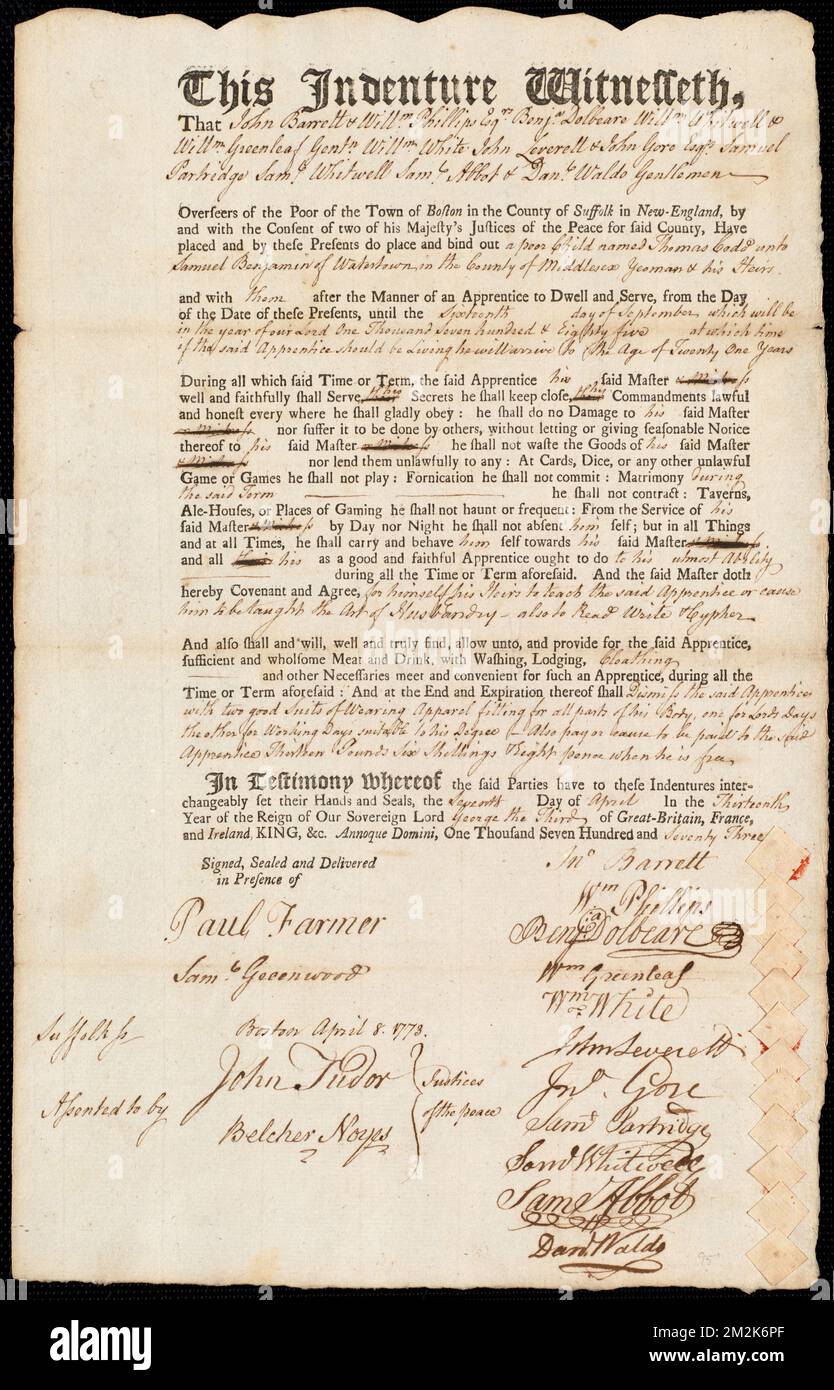 This Indenture Witnesseth,
That John Barrett & Willm Phillips Esqrs Benja Dolbeare Willm Whitwell &
Willm Greenleaf Gentn Willm White John Leverell & John Gore Esqrs Samuel
Partridge Saml Whitwell Saml Abbot & Danl Waldo Gentlemen
Overseers of the Poor of the Town of Boston in the County of Suffolk in New-England, by
and with the Consent of two of his Majesty's Justices of the Peace for said County, Have
placed and by these Presents do place and bind out a poor Child named Thomas Codd unto
Samuel Benjamin of Watertown in the County of Middlesex Yeoman & his Heirs
and with them after the Manner of an Apprentice to Dwell and Serve, from the Day
of the Date of these Presents, until the Sixteenth day of September which will be
in the year of our Lord One Thousand Seven hundred & Eighty five at which time
if the said Apprentice should be Living he will arrive to the Age of Twenty One Years
During all which said Time or Term, the said Apprentice his said Master
well and faithfully shall Serve, his Secrets he shall keep close, his Commandments lawful
and honest every where he shall gladly obey: he shall do no Damage to his said Master
nor suffer it to be done by others, without letting or giving seasonable Notice
thereof to his said Master he shall not waste the Goods of his said Master
nor lend them unlawfully to any: At Cards, Dice, or any other unlawful
Game or Games he shall not play: Fornication he shall not commit: Matrimony during
the said Term he shall not contract: Taverns,
Ale-Houses, or Places of Gaming he shall not haunt or frequent: From the Service of his
said Master by Day nor Night he shall not absent him self; but in all Things
and at all Times, he shall carry and behave him self towards his said Master
and all his as a good and faithful Apprentice ought to do to his utmost Ability
during all the Time or Term aforesaid. And the said Master doth
hereby Covenant and Agree, for himself his Heirs to teach the said Apprentice or cause
him to be taught the Art of Husbandry - also to Read Write & Cypher
And also shall and will, well and truly find, allow unto, and provide for the said Apprentice,
sufficient and wholsome Meat and Drink, with Washing, Lodging, Cloathing
and other Necessaries meet and convenient for such an Apprentice, during all the
Time or Term aforesaid: And at the End and Expiration thereof shall Dismiss the said Apprentice
with two good Suits of Wearing Apparel fitting for all parts of his Body, one for Lords Days
the other for Working Days suitable to his Degree - Also pay or cause to be paid to the said
Apprentice Thirteen Pounds Six Shillings & Eight pence when he is free
In Testimony whereof the said Parties have to these Indentures inter-
changeably set their Hands and Seals, the Seventh Day of April In the Thirteenth
Year of the Reign of Our Sovereign Lord George the Third of Great-Britain, France,
and Ireland, KING, &c. Annoque Domini, One Thousand Seven Hundred and Seventy Three
Signed, Sealed and Delivered
in Presence of
Jno Barrett
Wm Phillips
Paul Farmer
Benja Dolbeare
Saml Greenwood
Wm Greenleaf
Wm White
Suffolk ss
Boston April 8. 1773.
John Leverett
John Tudor
Justices
Jno Gore
Assented to by
of the peace
Saml Partridge
Belcher Noyes
Saml Whitwell
Saml Abbot
Danl Waldo
95
alamy
Image ID: 2M2K6PF
www.alamy.com